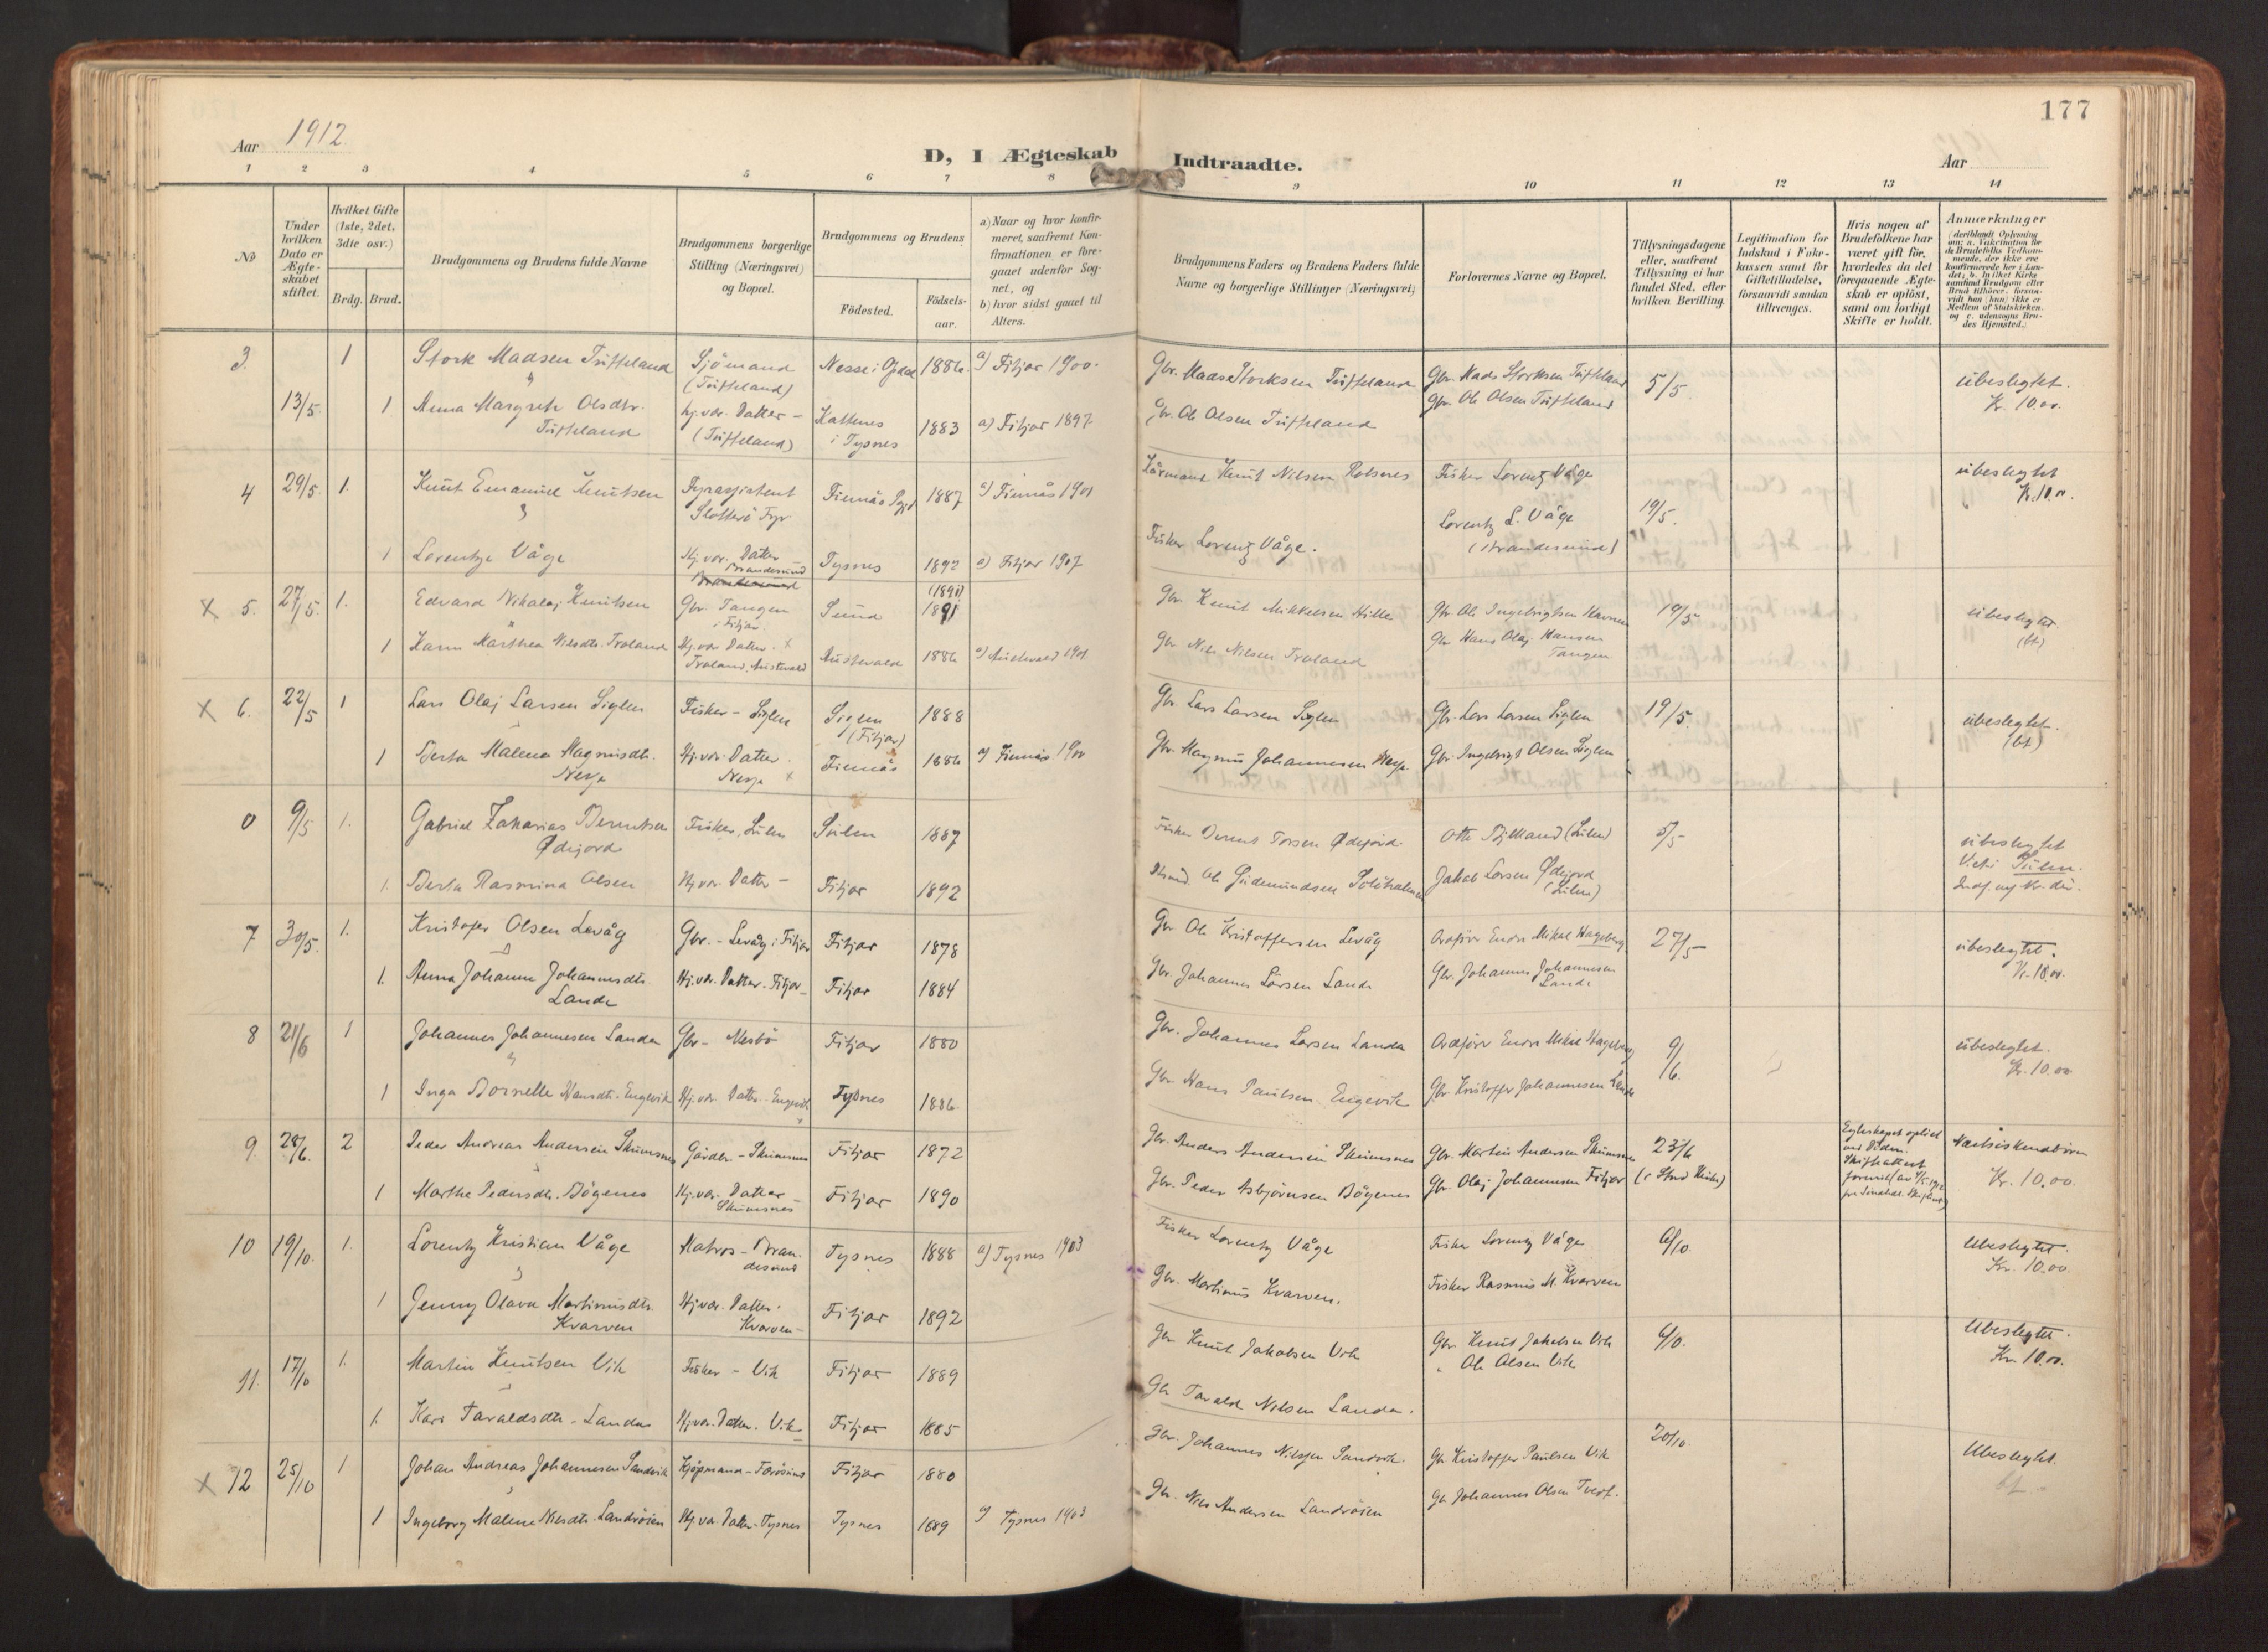 177
Aar 1912.
D, I Ægteskab Indtraadte.
Aar
1 2 3 4 5 6 7 8 9 10 11 12 13 14
No
Under hvilken Dato er Ægteskabet stiftet.
Hvilket Gifte (1ste, 2det, 3die osv.)
Brdg. Brud.
Brudgommens og Brudens fulde Navne
Brudgommens borgerlige Stilling (Næringsvei) og Bopæl.
Brudgommens og Brudens
Födested.
Födselsaar.
a) Naar og hvor konfirmeret, saafremt Konfirmationen er foregaaet udenfor Sognet, og
b) hvor sidst gaaet til Alters.
Brudgommens Faders og Brudens Faders fulde Navne og borgerlige Stillinger (Næringsvei)
Forlovernes Navne og Bopæl.
Tillysningsdagene eller, saafremt Tillysning ei har fundet Sted, efter hvilken Bevilling.
Legitimation for Indskud i Enkekassen samt for Giftetilladelse, forsaavidt saadan tiltrænges.
Hvis nogen af Brudefolkene har været gift för, hvorledes da det foregaaende Ægteskab er oplöst, samt om lovligt Skifte er holdt.
Anmærkninger (deriblandt Oplysning om: a. Vakcination for de Brudefolks Vedkommende, der ikke ere konfirmerede her i Landet; b. hvilket Kirkesamfund Brudgom eller Brud tilhörer, forsaavidt han (hun) ikke er Medlem af Statskirken, og c. udensogns Brudes Hjemsted.)
3. 1 Stork Madsen Tufteland Sjömand (Tufteland) Nesse i Opdal 1886. a) Fitjar 1900. Gbr. Mads Storksen Tufteland Gbr. Mads Storksen Tufteland 5/5 ubeslegtet.
13/5. 1 Anna Margrete Olsdtr. Tufteland Hj.vær. Datter - (Tufteland) Kattenes i Tysnes 1883 a) Fitjar 1897. Gbr. Ole Olsen Tufteland Gbr. Ole Olsen Tufteland Kr. 10.00.
4 29/5. 1. Knut Emanuel Knutsen Fyrassistent Slotterö Fyr Finnås Pgjd 1887 a) Finnås 1901 Knut Nilsen Fisker Lorentz Våge 19/5. ubeslegtet Kr. 10.00.
1 Lorentze Våge Hj.vær. Datter Brandesund Tysnes 1892 a) Fitjar 1907 Fisker Lorentz Våge. Lorentz L. Våge (Brandesund)
x 5. 27/5. 1. Edvard Nikolaj Knutsen Gbr. Tangen i Fitjar. Sund (1891) 1891 Gbr. Knut Mikkelsen Hille Gbr. Ole Ingebrigtsen Havnen 19/5 ubeslegtet. (bt)
1 Karen Marthea Nilsdtr. Troland Hj.vær. Datter. x Troland, Austevold Austevold 1886 a) Austevold 1901 Gbr. Nils Nilsen Troland Gbr. Hans Olaj Hansen Tangen
x 6. 22/5 1 Lars Olaj Larsen Siglen Fisker - Siglen Siglen (Fitjar) 1888 Gbr. Lars Larsen Siglen Gbr. Lars Larsen Siglen 19/5. ubeslegtet. (bt)
1 Berta Malena Magnusdtr. Nesje Hj.vær. Datter. Nesje x Finnås 1886 a) Finnås 1900 Gbr. Magnus Johannesen Nesje Gbr. Ingebrigt Olsen Siglen
0 9/5 1. Gabriel Zakarias Berentsen Ødejord Fisker, Sulen Sulen 1887 Fisker Berent Torsen Ødejord. Otto (Sulen) 5/5 ubeslegtet Viet i Sulen.
1. Berta Rasmina Olsen Hj.vær. Datter - Fitjar 1892 Ole Gudmundsen Jakob Larsen Ødejord (Sulen)
7 30/5. 1. Kristofer Olsen Levåg Gbr. - Levåg i Fitjar Fitjar 1878 Gbr. Ole Kristoffersen Levåg Ordförer Endre Mikal Hageberg 27/5 ubeslegtet. Kr. 10.00.
1. Anna Johanne Johannesdtr. Landa Hj.vær. Datter. Fitjar Fitjar 1884 Gbr. Johannes Larsen Landa Gbr. Johannes Johannesen Landa
8 21/6 1 Johannes Johannesen Landa Gbr - Mesbö Fitjar 1880 Gbr. Johannes Larsen Landa Ordförer Endre Mikal Hageberg 9/6. ubeslegtet. Kr. 10.00
1 Inga Bornelle Hansdtr. Engevik Hj.vær. Datter. Engevik Tysnes 1886. Gbr. Hans Paulsen Engevik Gbr. Kristoffer Johannesen Landa
9. 28/6. 2 Peder Andreas Andersen Skumsnes Gårdbr. - Skumsnes Fitjar 1872 Gbr. Anders Andersen Skumsnes Gbr. Martin Andersen Skumsnes 23/6 (i Stord Kirke) Egteskapet oplöst ved Döden. Næstsöskendbörn Kr. 10.00.
1 Marthe Pedersdtr. Bögenes Hj.vær. Datter - Skumsnes Fitjar 1890 Gbr. Peder Asbjörnsen Bögenes Gbr. Olaj Johannesen Fitjar
10 19/10. 1. Lorentz Kristian Våge Matros - Brandesund Tysnes 1888 a) Tysnes 1903 Fisker Lorentz Våge Fisker Lorentz Våge 6/10. Ubeslegtet. Kr. 10.00.
1 Jenny Olava Martinusdtr. Kvarven Hj.vær. Datter. Kvarven - Fitjar 1892 Gbr. Martinus Kvarven. Fisker Rasmus M. Kvarven
11. 17/10 1. Martin Knutsen Vik Fisker - Vik Fitjar 1889 Gbr Knut Jakobsen Vik Gbr. Knut Jakobsen Vik 6/10. Ubeslegtet. Kr. 10.00.
1. Kari Taraldsdtr. Landa Hj.vær. Datter. Vik Fitjar 1885 Gbr Tarald Nilsen Landa. " Ole Olsen Vik
x 12 25/10 1 Johan Andreas Johannesen Sandvik Kjöpmand - Fitjar 1880 Gbr. Johannes Nilssen Sandvik. Gbr Kristoffer Paulsen Vik 20/10. Ubeslegtet. bt.
1 Ingeborg Malene Nilsdtr. Landröien Hj.vær. Datter. Tysnes Tysnes 1889 a) Tysnes 1903 Gbr. Nils Andersen Landröien Gbr Johannes Olsen